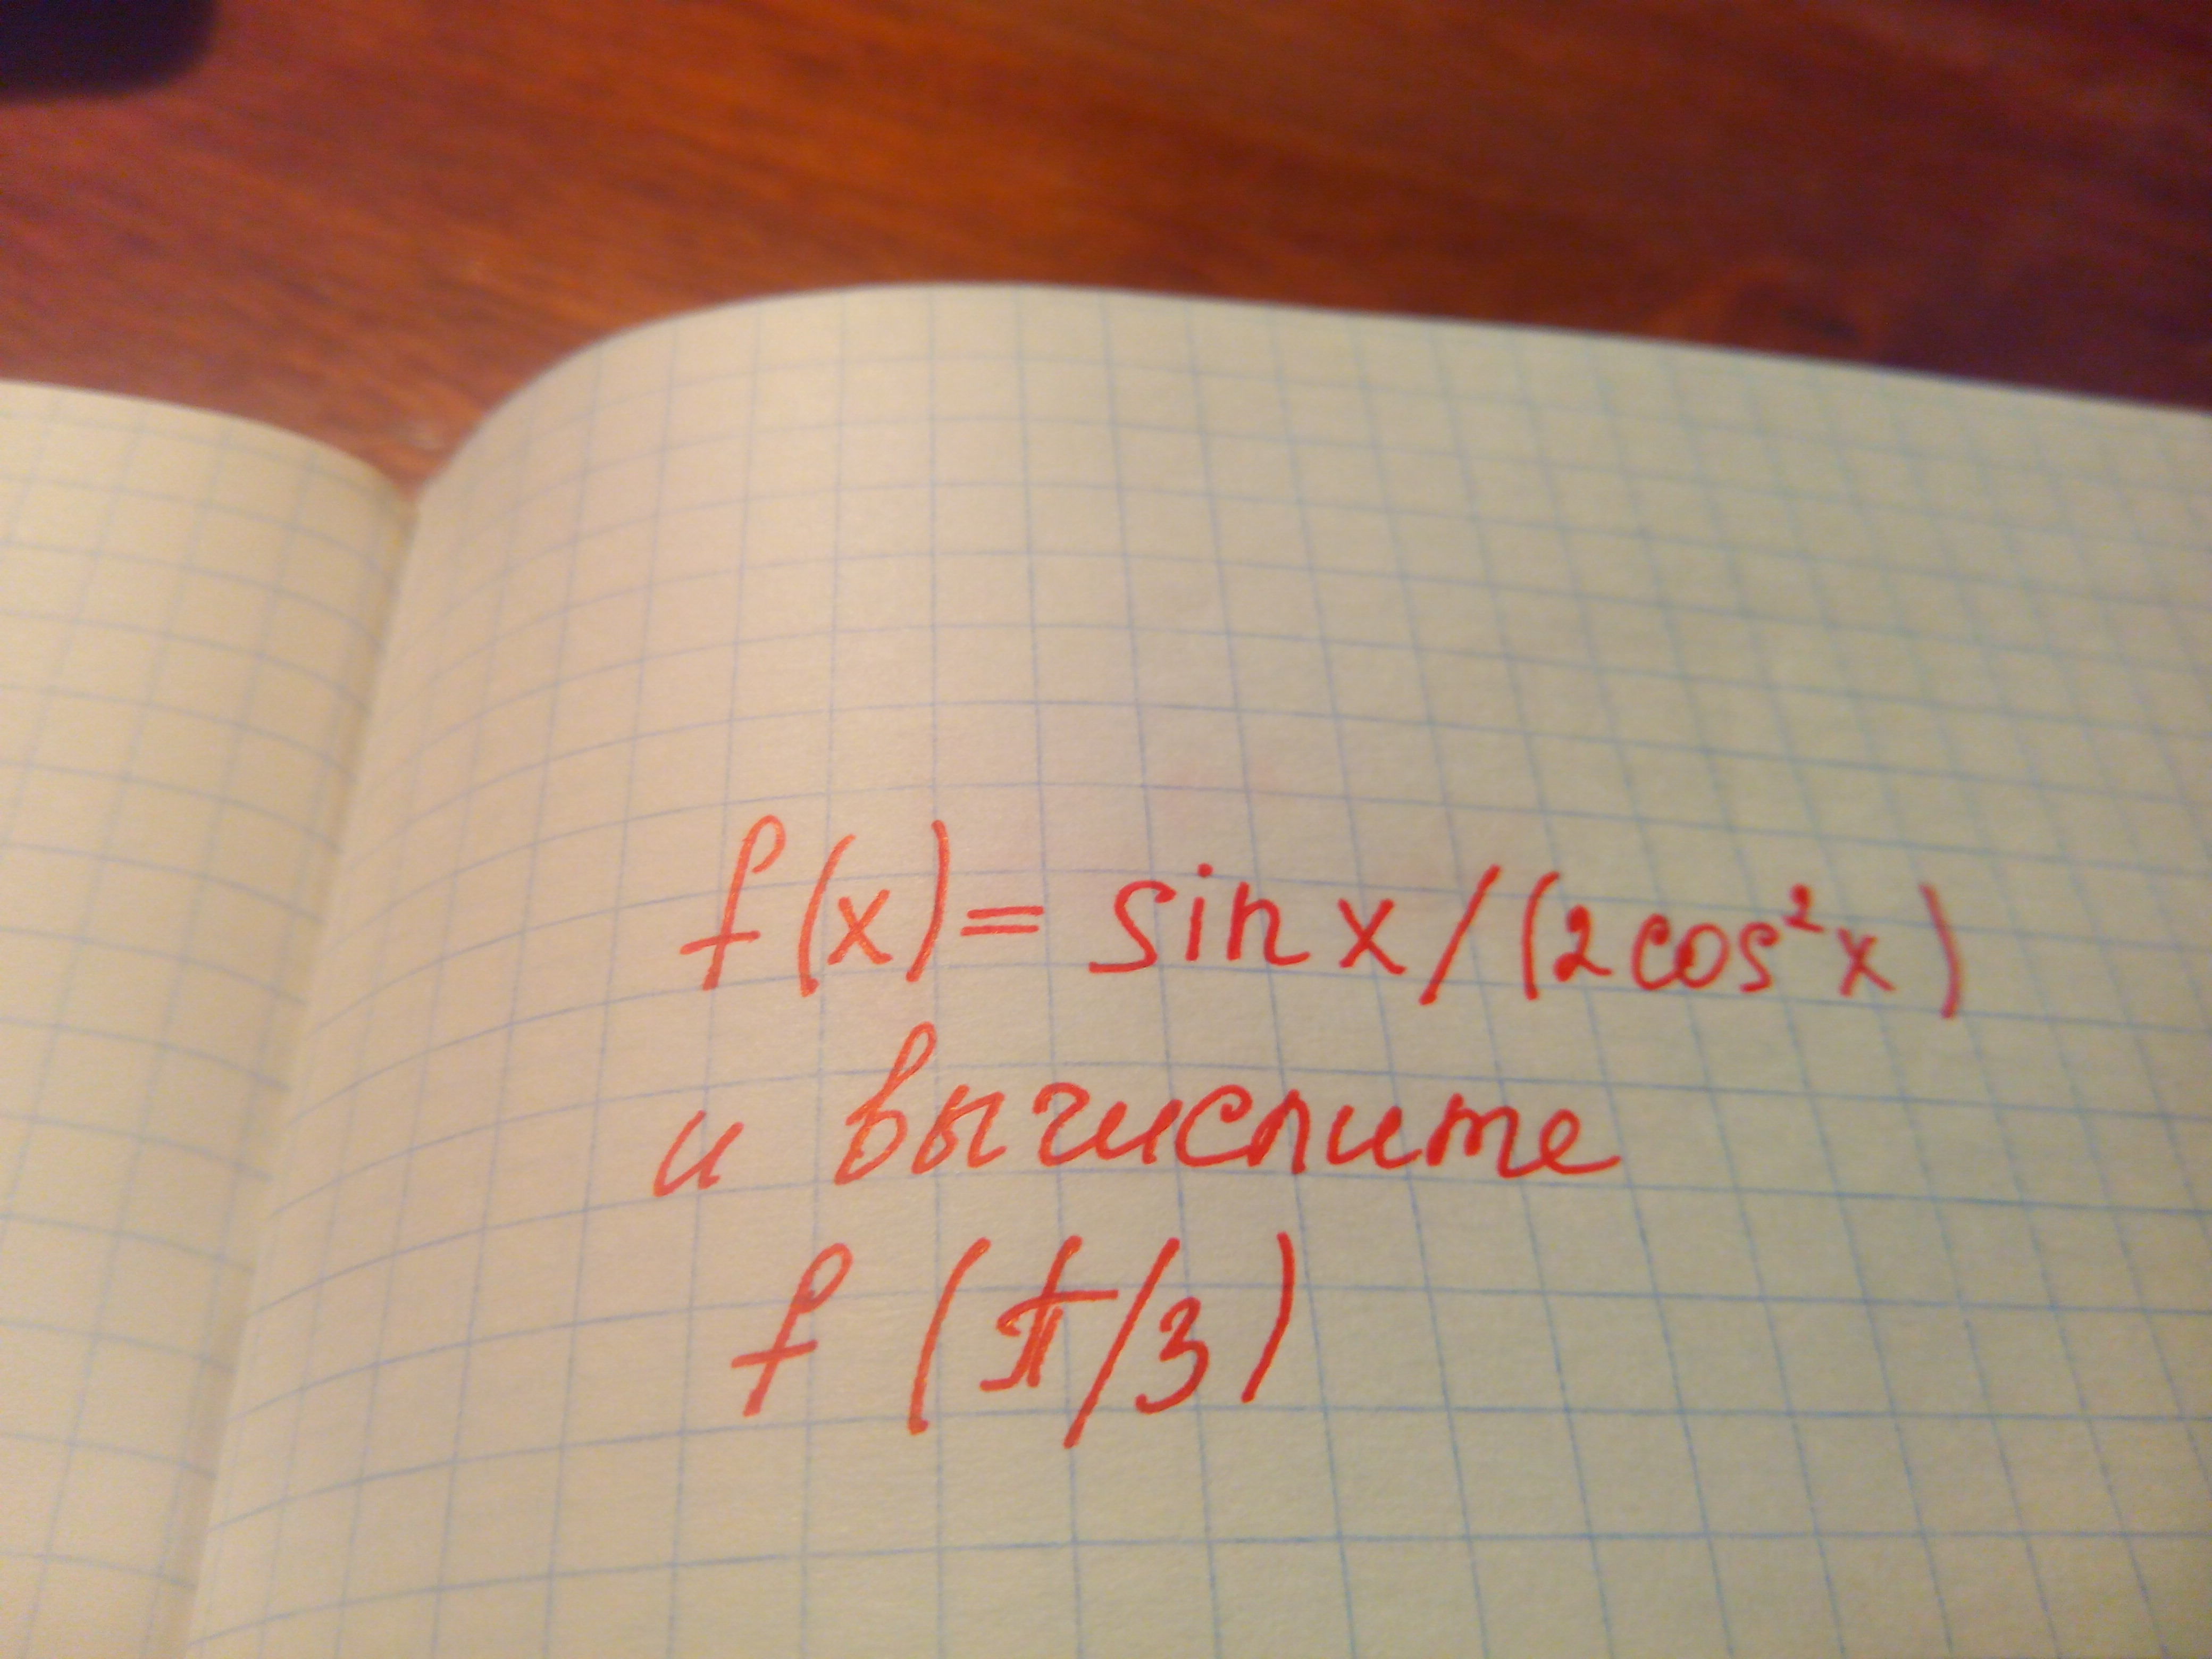 f(x)= sin x/(2cos²x)
и вычислите
f (π/3)